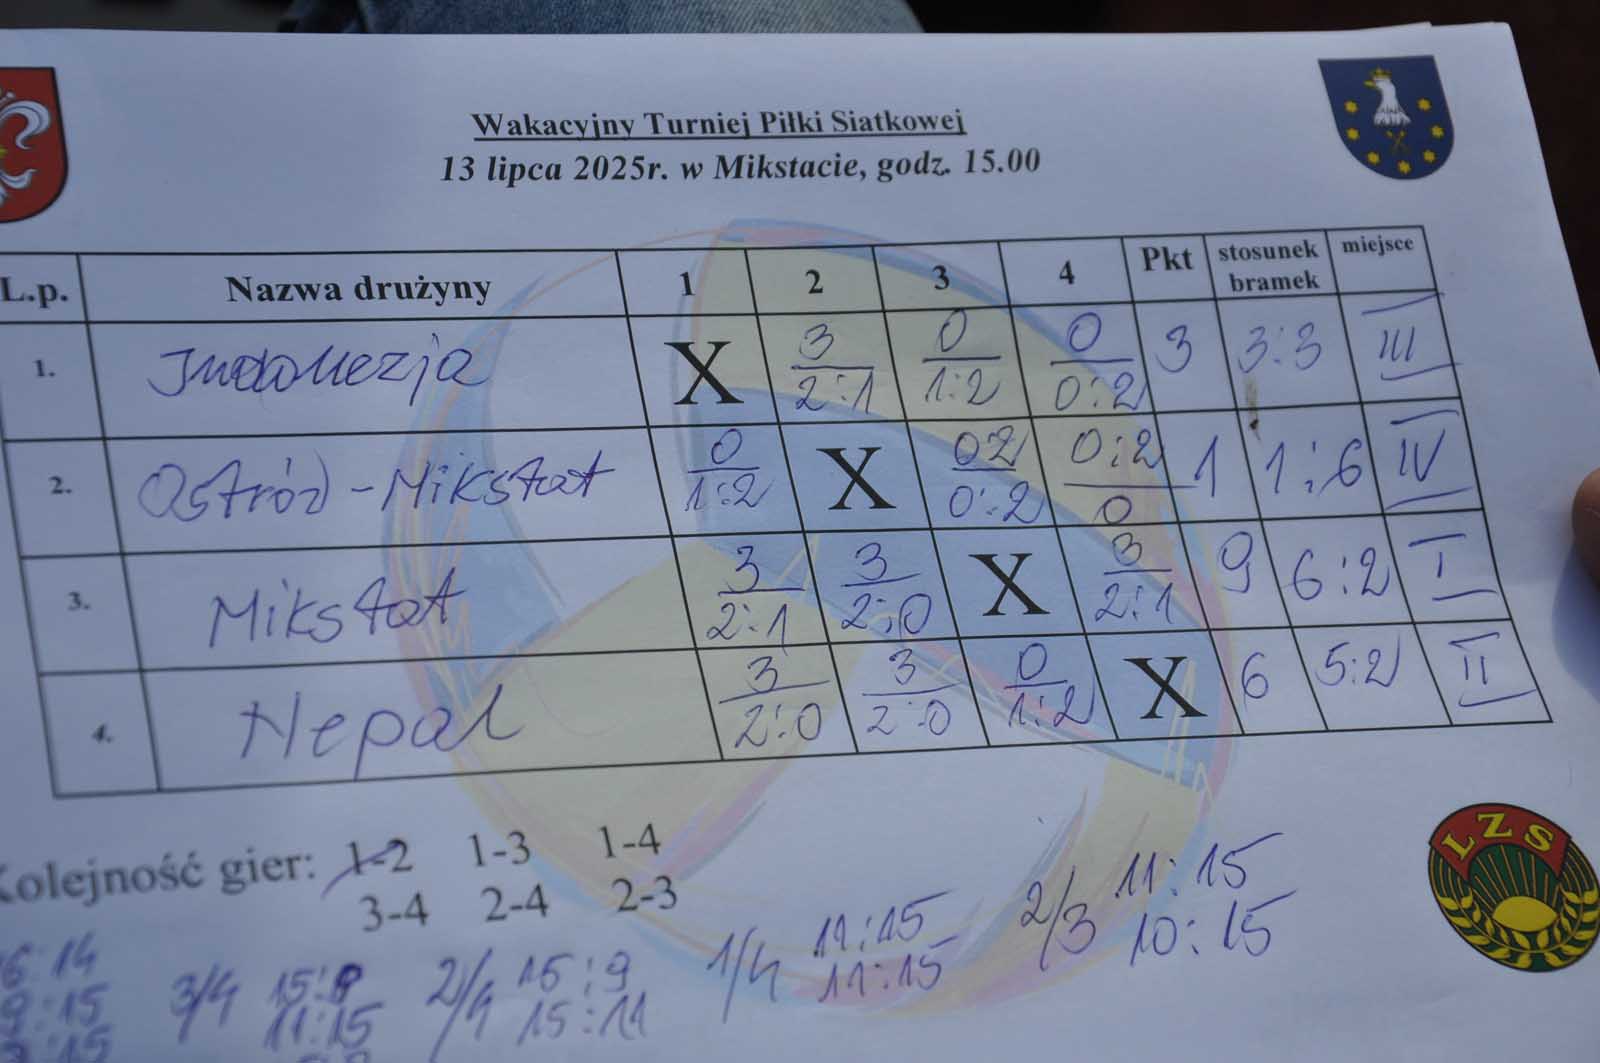 Wakacyjny Turniej Piłki Siatkowej
13 lipca 2025r. w Mikstacie, godz. 15.00
L.p. Nazwa drużyny 1 2 3 4 Pkt stosunek bramek miejsce
1. Indonezja X 3 2:1 0 1:2 0 0:2 3 3:3 III
2. Ostród-Mikstat 0 1:2 X 0:2 0 0:2 0 1 1:6 IV
3. Mikstat 3 2:1 3 2:0 X 3 2:1 9 6:2 I
4. Nepal 3 2:0 3 2:0 0 1:2 X 6 5:2 II
Kolejność gier: 1-2 1-3 1-4
3-4 2-4 2-3
LZS
6:14 3/4 15:9 2/4 15:9 1/4 11:15 2/3 11:15
9:15 11:15 15:11 11:15 10:15
:15